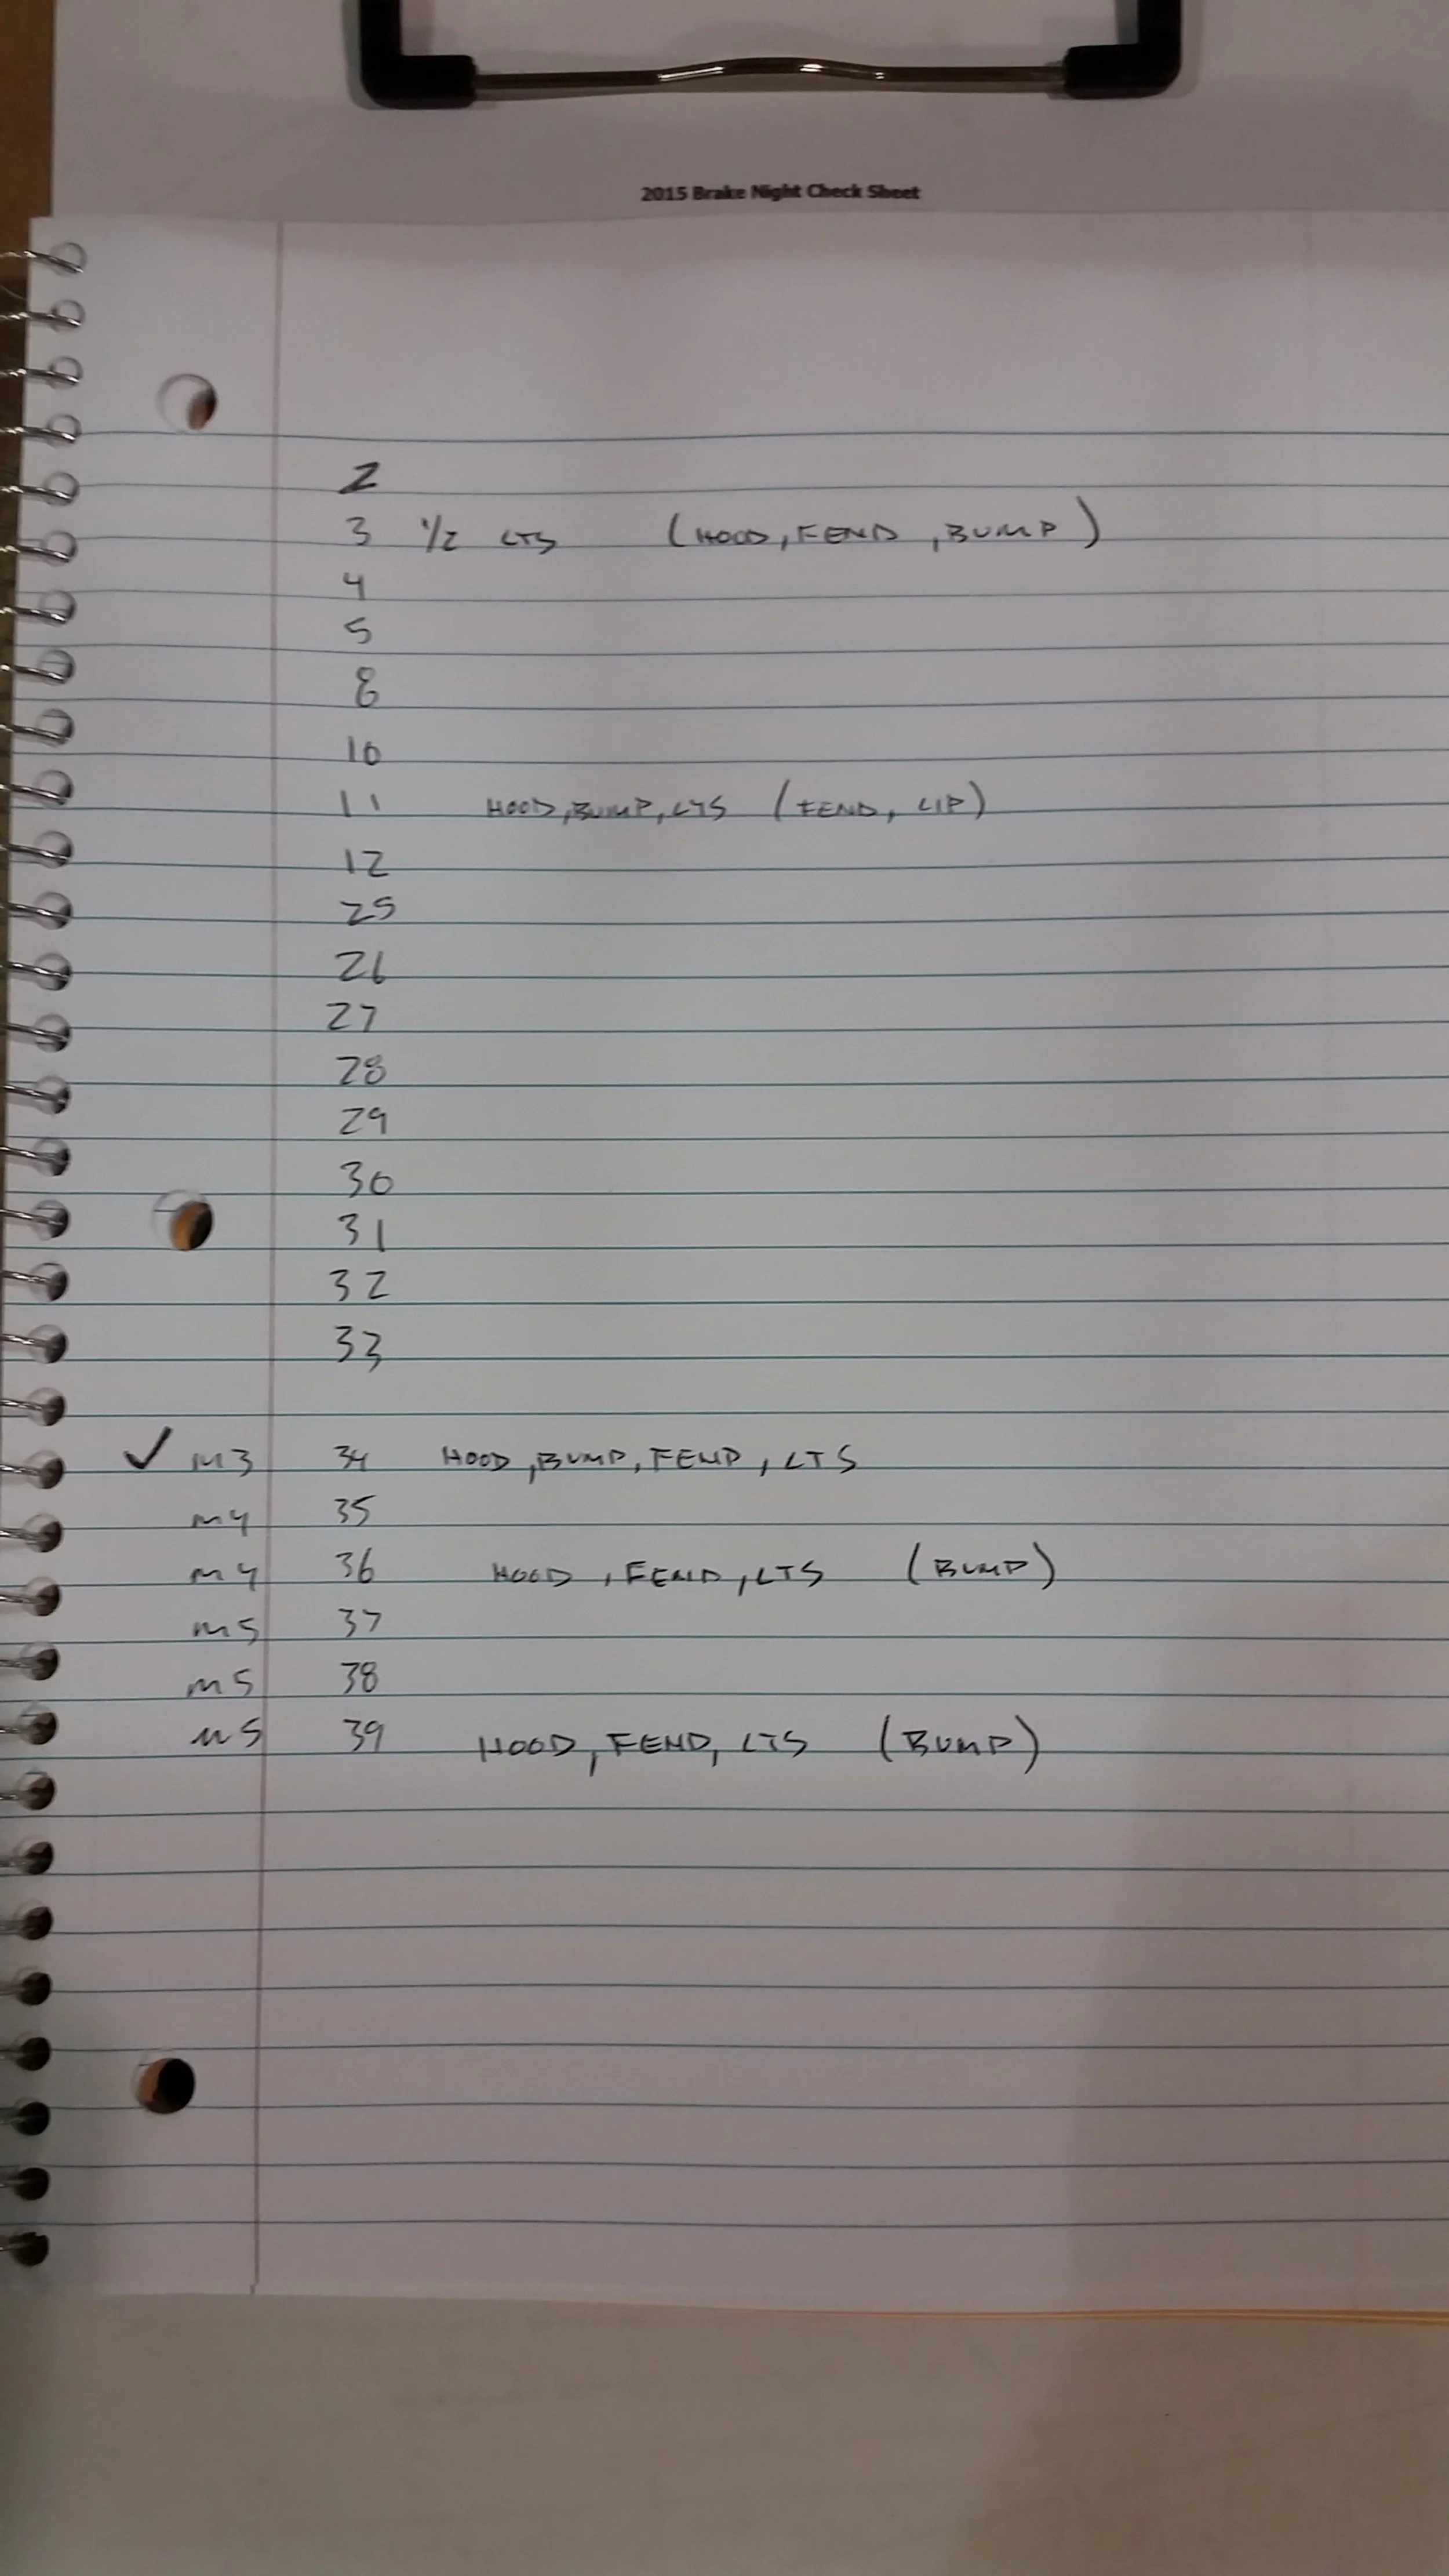 2015 Brake Night Check Sheet
2
3 1/2 LTS (HOOD, FEND, BUMP)
4
5
8
10
11 HOOD, BUMP, LTS (FEND, LIP)
12
25
26
27
28
29
30
31
32
33
✓ M3 34 HOOD, BUMP, FEND, LTS
M4 35
M4 36 HOOD, FEND, LTS (BUMP)
M5 37
M5 38
M5 39 HOOD, FEND, LTS (BUMP)